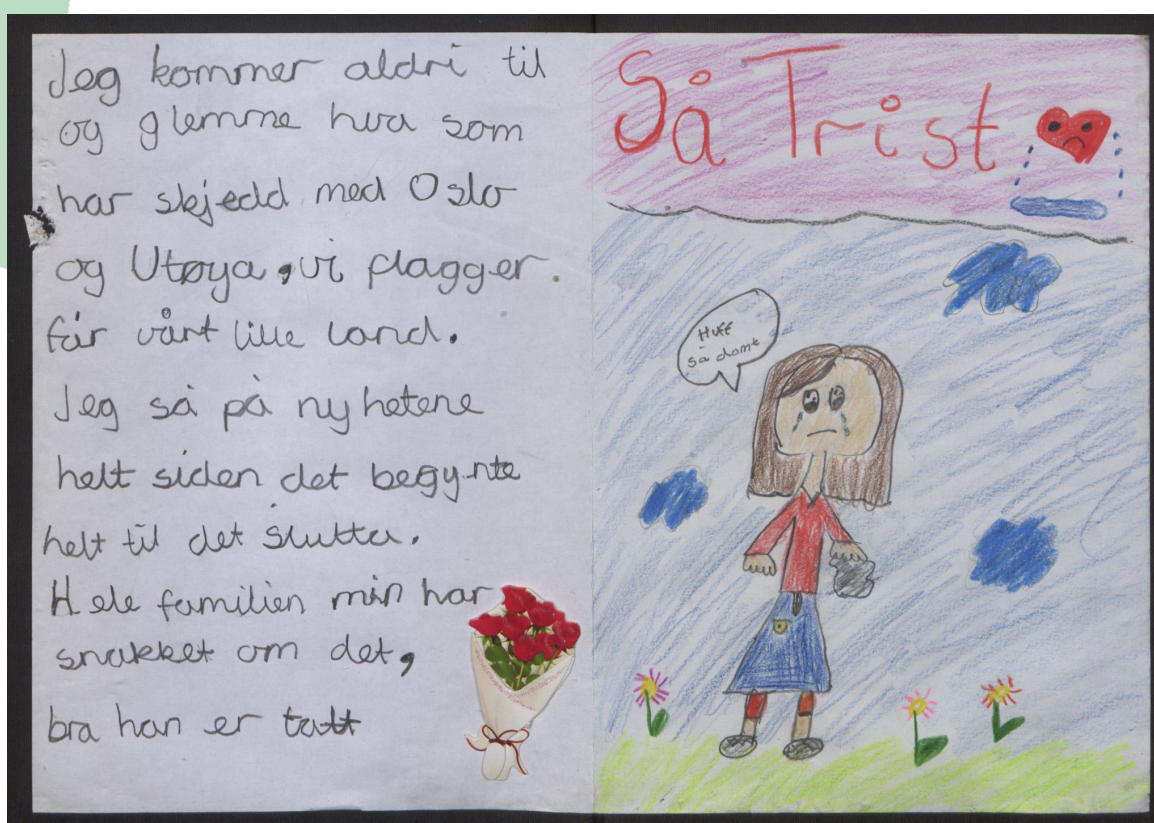 Jeg kommer aldri til
og glemme hva som
har skjedd med Oslo
og Utøya, vi flagger
får vårt lille land.
Jeg så på nyhetene
helt siden det begynte
helt til det slutta.
Hele familien min har
snakket om det,
bra han er tatt
Så Trist
Huff
så domt